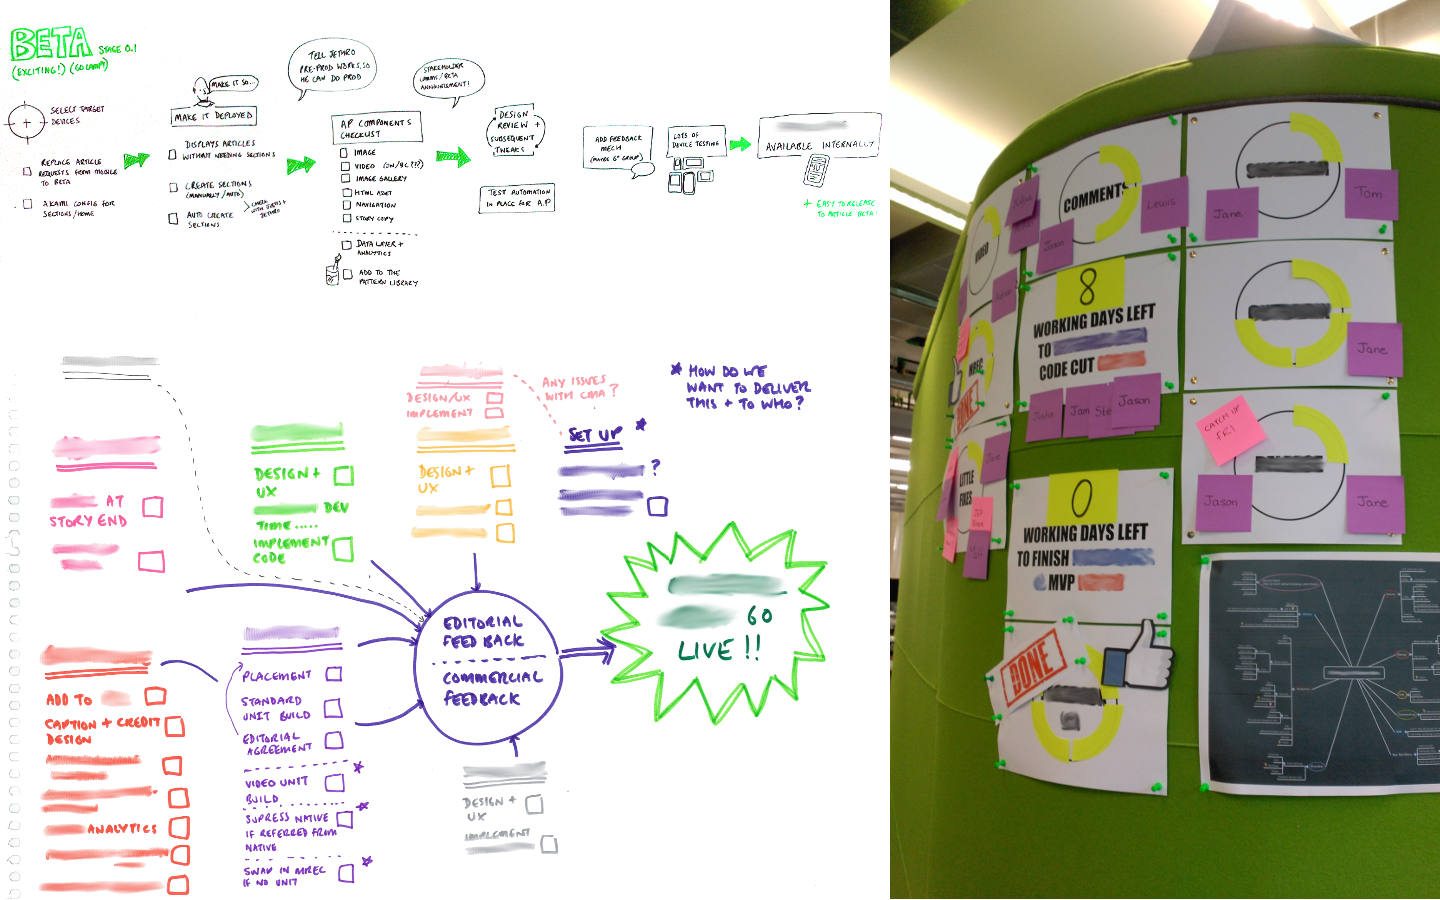 BETA STAGE 0.1
(EXCITING!) (GO LAMP!)
SELECT TARGET
DEVICES
REPLACE ARTICLE
REQUESTS FROM MOBILE
TO BETA
AKAMI CONFIG FOR
SECTIONS/HOME
MAKE IT SO...
MAKE IT DEPLOYED
DISPLAYS ARTICLES
WITHOUT NEEDING SECTIONS
CREATE SECTIONS
(MANUALLY/AUTO)
AUTO CREATE
SECTIONS
JETHRO
TELL JETHRO
PRE-PROD WORKS, SO
HE CAN DO PROD
AP COMPONENTS
CHECKLIST
IMAGE
VIDEO
IMAGE GALLERY
HTML ASSET
NAVIGATION
STORY COPY
DATA LAYER +
ANALYTICS
ADD TO THE
PATTERN LIBRARY
STAKEHOLDER
COMMS/BETA
ANNOUNCEMENT!
DESIGN
REVIEW +
SUBSEQUENT
TWEAKS
TEST AUTOMATION
IN PLACE FOR A.P
ADD FEEDBACK
MECH
(MAYBE G+ GROUP)
LOTS OF
DEVICE TESTING
AVAILABLE INTERNALLY
+ EASY TO RELEASE
TO ARTICLE BETA!
AT
STORY END
DESIGN +
UX
DEV
TIME .....
IMPLEMENT
CODE
DESIGN/UX
IMPLEMENT
ANY ISSUES
WITH CMA?
DESIGN +
UX
SET UP
?
HOW DO WE
WANT TO DELIVER
THIS + TO WHO?
ADD TO
CAPTION + CREDIT
DESIGN
ANALYTICS
PLACEMENT
STANDARD
UNIT BUILD
EDITORIAL
AGREEMENT
VIDEO UNIT
BUILD
SUPRESS NATIVE
IF REFERRED FROM
NATIVE
SWAP IN MREC
IF NO UNIT
EDITORIAL
FEEDBACK
COMMERCIAL
FEEDBACK
DESIGN +
UX
IMPLEMENT
GO
LIVE !!
VIDEO
COMMENTS
Jason
Lewis
Jane
Tom
8
WORKING DAYS LEFT
TO
CODE CUT
Jam
Ste
Jason
MREC
DONE
Jane
CATCH UP
FRI
Jason
Jane
LITTLE
FIXES
Jane
0
WORKING DAYS LEFT
TO FINISH
MVP
DONE